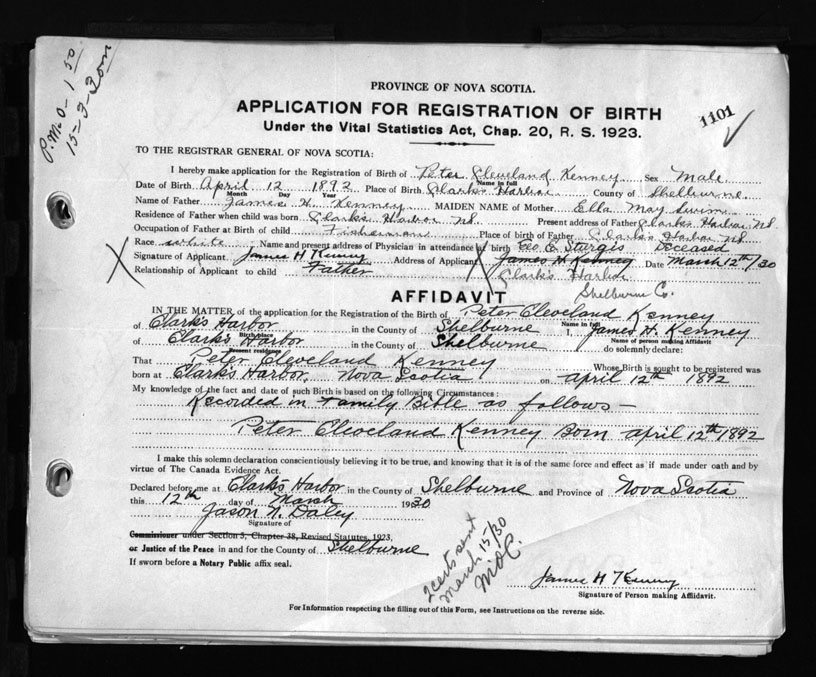 P.M.O- 1 50
15-3-
PROVINCE OF NOVA SCOTIA.
APPLICATION FOR REGISTRATION OF BIRTH
1101
Under the Vital Statistics Act, Chap. 20, R. S. 1923.
TO THE REGISTRAR GENERAL OF NOVA SCOTIA:
I hereby make application for the Registration of Birth of Peter Cleveland Kenney Sex Male
Name in full
Date of Birth April 12 1892 Place of Birth Clark's Harbor County of Shelburne
Month Day Year
Name of Father James H. Kenney MAIDEN NAME of Mother Ella May Swim
Residence of Father when child was born Clark's Harbor NS Present address of Father Clarks Harbor NS
Occupation of Father at Birth of child Fisherman Place of birth of Father Clarks Harbor NS
Race white Name and present address of Physician in attendance at birth Geo E Sturgis Deceased
Signature of Applicant James H Kenney Address of Applicant James H Kenney Date March 12th/30
Relationship of Applicant to child Father Clark's Harbor
Shelburne Co.
AFFIDAVIT
IN THE MATTER of the application for the Registration of Birth of Peter Cleveland Kenney
Name in full
of Clark's Harbor in the County of Shelburne I, James H. Kenney
Birthplace Name of person making Affidavit
of Clark's Harbor in the County of Shelburne do solemnly declare:
Present residence
That Peter Cleveland Kenney Whose Birth is sought to be registered was
born at Clark's Harbor, Nova Scotia on April 12th 1892
My knowledge of the fact and date of such Birth is based on the following Circumstances:
Recorded in Family Bible as follows—
Peter Cleveland Kenney Born April 12th 1892
I make this solemn declaration conscientiously believing it to be true, and knowing that it is of the same force and effect as if made under oath and by
virtue of The Canada Evidence Act.
Declared before me at Clark's Harbor in the County of Shelburne and Province of Nova Scotia
this 12th day of March 1930
Jason N. Daley
Signature of
Commissioner under Section 5, Chapter 38, Revised Statutes, 1923,
or Justice of the Peace in and for the County of Shelburne
If sworn before a Notary Public affix seal.
2 certs sent
March 15/30
James H Kenney
Signature of Person making Affidavit.
For Information respecting the filling out of this Form, see Instructions on the reverse side.